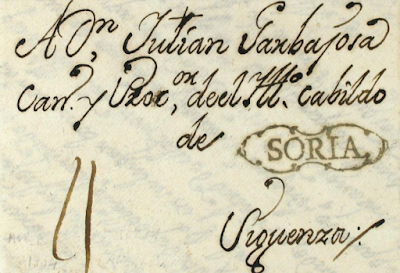 A Dn. Julian Garbajosa
Can. y Pror.on, de el Ille. Cabildo
de SORIA
Siguenza